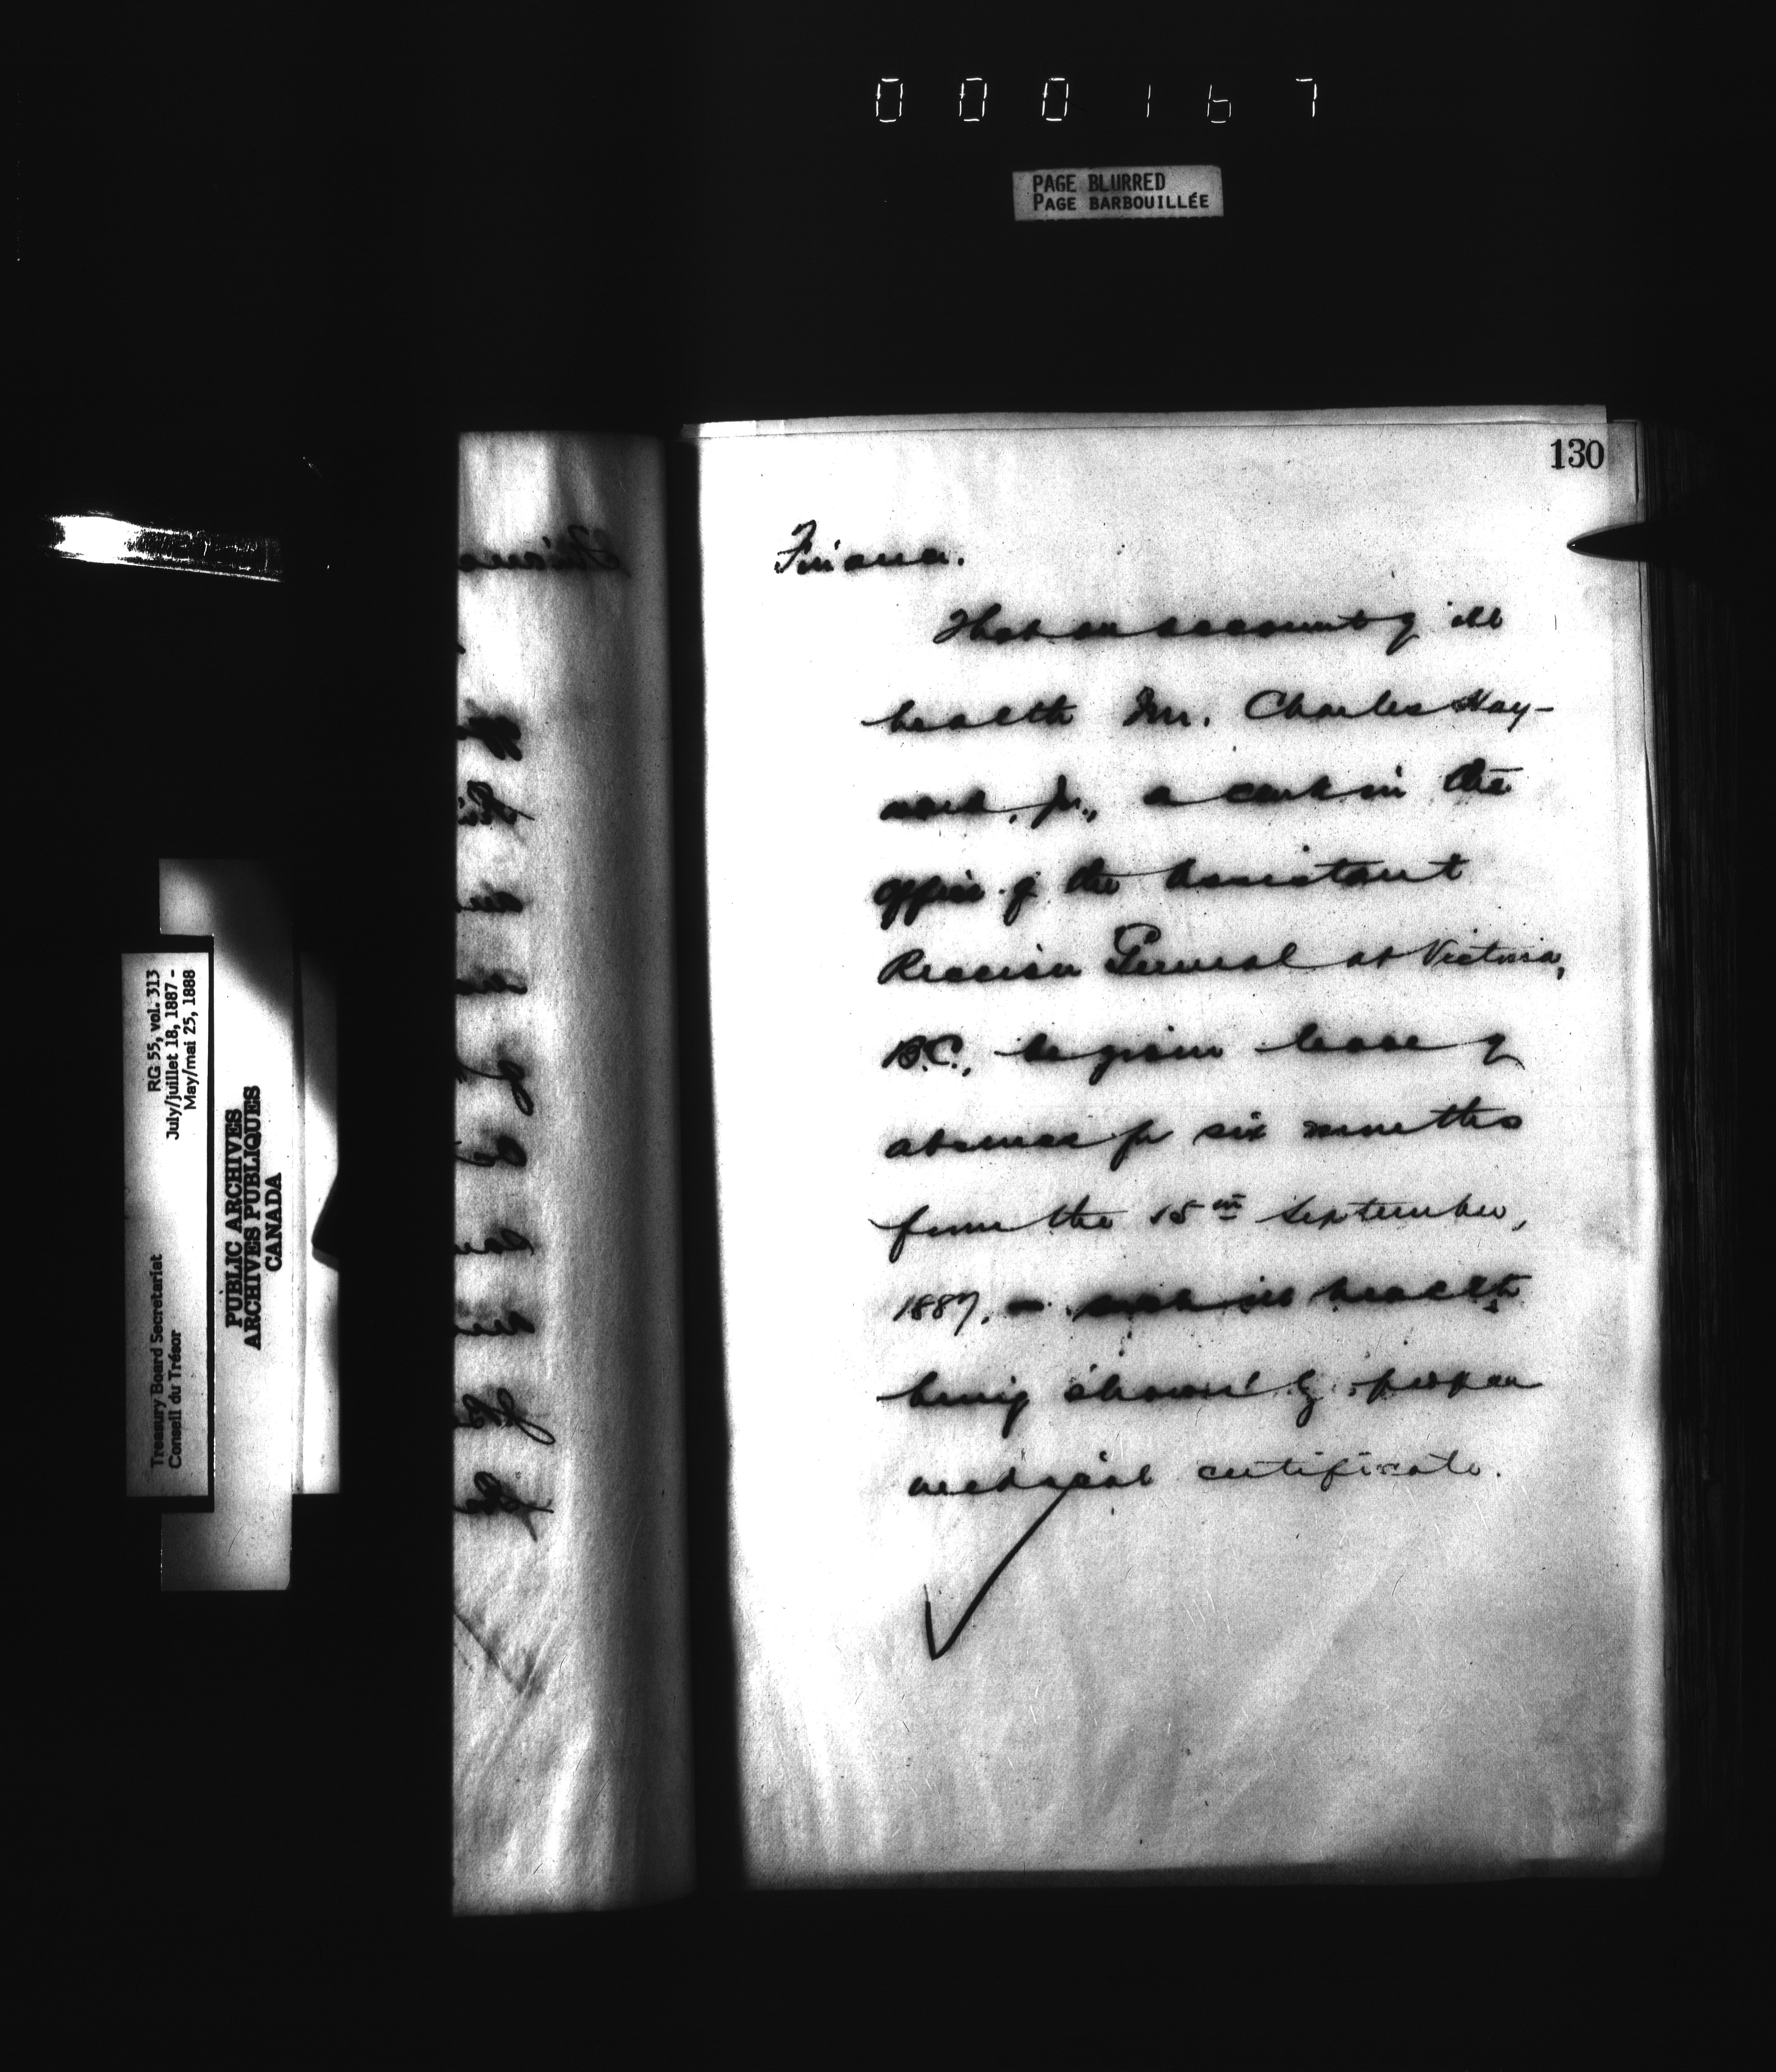 000167
PAGE BLURRED
PAGE BARBOUILLÉE
130
Finance.
That on account of ill
health Mr. Charles Hay-
ward, Jr., a clerk in the
office of the Assistant
Receiver General at Victoria,
B.C., be given leave of
absence for six months
from the 15th September,
1887, — such ill health
being shown by proper
medical certificate.
RG 55, vol. 313
July/juillet 18, 1887 -
May/mai 25, 1888
Treasury Board Secretariat
Conseil du Trésor
PUBLIC ARCHIVES
ARCHIVES PUBLIQUES
CANADA